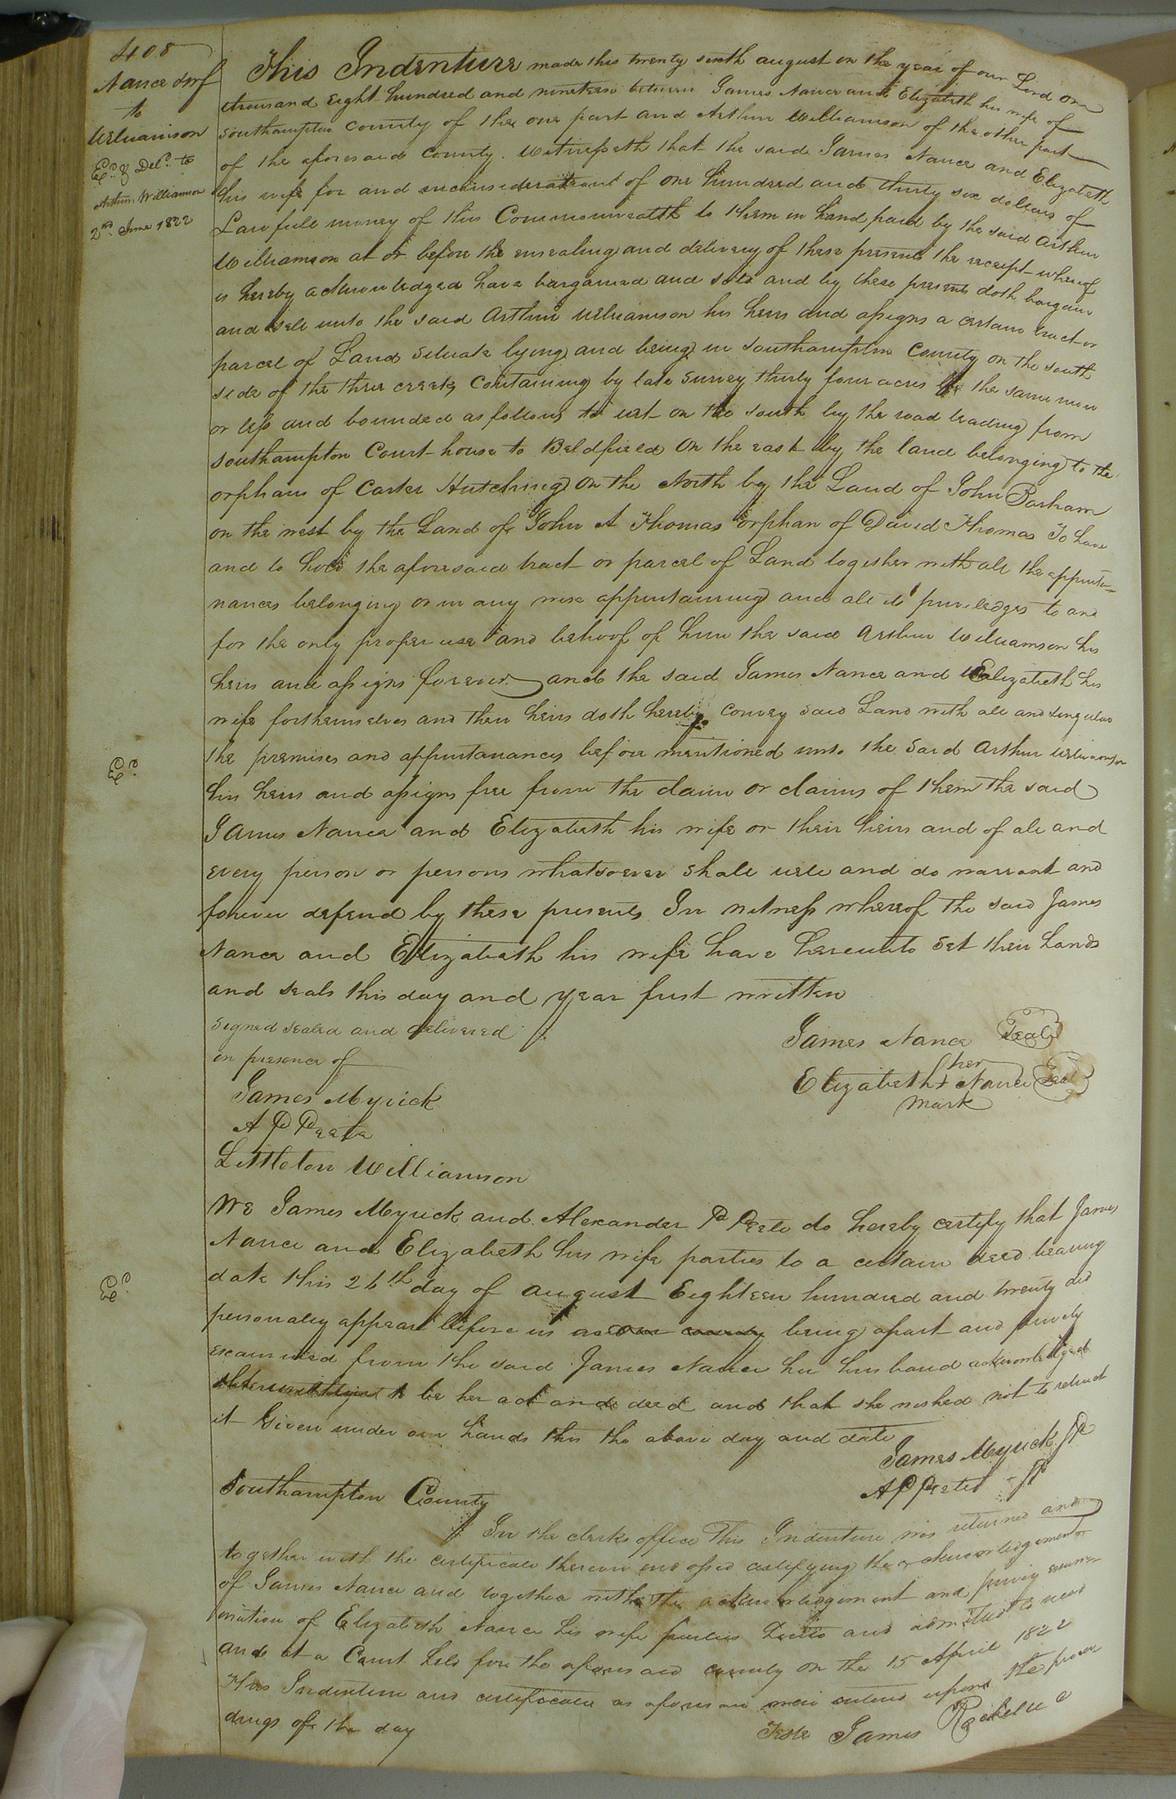 408
Nance &wf
to
Williamson
Ex.d & Del.d to
Arthur Williamson
2nd June 1822
This Indenture made this twenty sixth august in the year of our Lord one
thousand eight hundred and nineteen between James Nance and Elizabeth his wife of
Southampton County of the one part and Arthur Williamson of the other part
of the aforesaid County. Witnesseth that the said James Nance and Elizabeth
his wife for and in consideration of one hundred and thirty six dollars of
Lawfull money of this Commonwealth to them in hand paid by the said Arthur
Williamson at or before the ensealing and delivery of these presents the receipt whereof
is hereby acknowledged have bargained and sold and by these presents doth bargain
and sell unto the said Arthur Williamson his heirs and assigns a certain tract or
parcel of Land Situate lying and being in Southampton County on the south
side of the three creeks Containing by late Survey thirty four acres be the same more
or less and bounded as follows to wit on the south by the road leading from
Southampton Court house to Beldfield On the east by the land belonging to the
orphans of Carter Hutchings On the North by the Land of John Barham
on the west by the Land of John A Thomas orphan of David Thomas To have
and to hold the aforesaid tract or parcel of Land together with all the appurte-
nances belonging or in any wise appurtaining and all it's priviledges to and
for the only proper use and behoof of him the said Arthur Williamson his
heirs and assigns forever and the said James Nance and Elizabeth his
wife forthemselves and their heirs doth hereby convey said Land with all and singular
the premises and appurtanances before mentioned unto the Said Arthur Williamson
his heirs and assigns free from the claim or claims of them the said
James Nance and Elizabeth his wife or their heirs and of all and
every person or persons whatsoever shall will and do warrant and
forever defend by these presents In witness whereof the said James
Nance and Elizabeth his wife have hereunto Set their hands
and seals this day and year first written
Signed sealed and delivered
in presence of
James Nance Seal
her
Elizabeth + Nance Seal
mark
James Myrick
A P Peete
Littleton Williamson
Ex.d
We James Myrick and Alexander P Peete do hereby certify that James
Nance and Elizabeth his wife parties to a certain deed bearing
date this 26th day of august Eighteen hundred and twenty did
personally appear before us being apart and privily
examined from the said James Nance her husband acknowledged
to be her act and deed and that she wished not to retract
it Given under our hands this the above day and date
James Myrick JP
A P Peete JP
Ex.d
Southampton County
In the clerks office This Indenture was returned and
together with the certificate thereon endorsed certifying the acknowledgement
of James Nance and together with the acknowledgement and privy exami-
nation of Elizabeth Nance his wife parties and admitted to
and at a Court held for the aforesaid county on the 15 April 1822
This Indenture and certificate as aforesaid were entered upon the procee
dings of the day
Teste James Rochelle